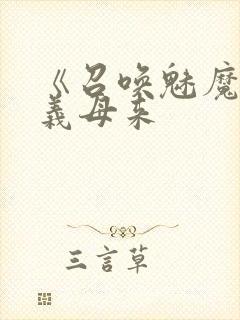 《召唤魅魔
义母来
三言草